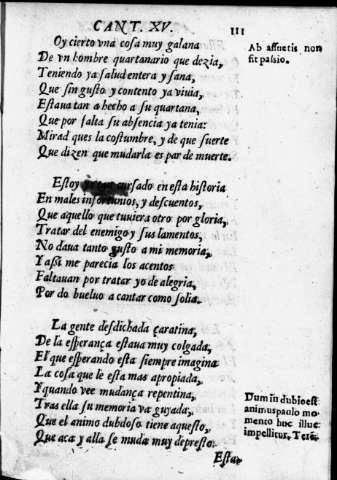 CANT. XV.
111
Oy cierto vna cosa muy galana
De vn hombre quartanario que dezia,
Teniendo ya salud entera y sana,
Que sin gusto y contento ya viuia,
Estaua tan a hecho a su quartana,
Que por falta su absencia ya tenia:
Mirad ques la costumbre, y de que suerte
Que dizen que mudarla es par de muerte.
Ab assuetis non
fit passio.
Estoy ya tan cursado en esta historia
En males infortunios, y descuentos,
Que aquello que tuuiera otro por gloria,
Tratar del enemigo y sus lamentos,
No daua tanto gusto a mi memoria,
Yassi me parecia los acentos
Faltauan por tratar yo de alegria,
Por do bueluo a cantar como solia.
La gente desdichada çaratina,
De la esperança estaua muy colgada,
El que esperando esta siempre imagina
La cosa que le esta mas apropiada,
Y quando vee mudança repentina,
Tras ella su memoria va guyada,
Que el animo dubdoso tiene aquesto,
Que aca y alla se muda muy depresto.
Dum in dubio est
animus paulo mo
mento huc illuc
impellitur, Terē.
Esta